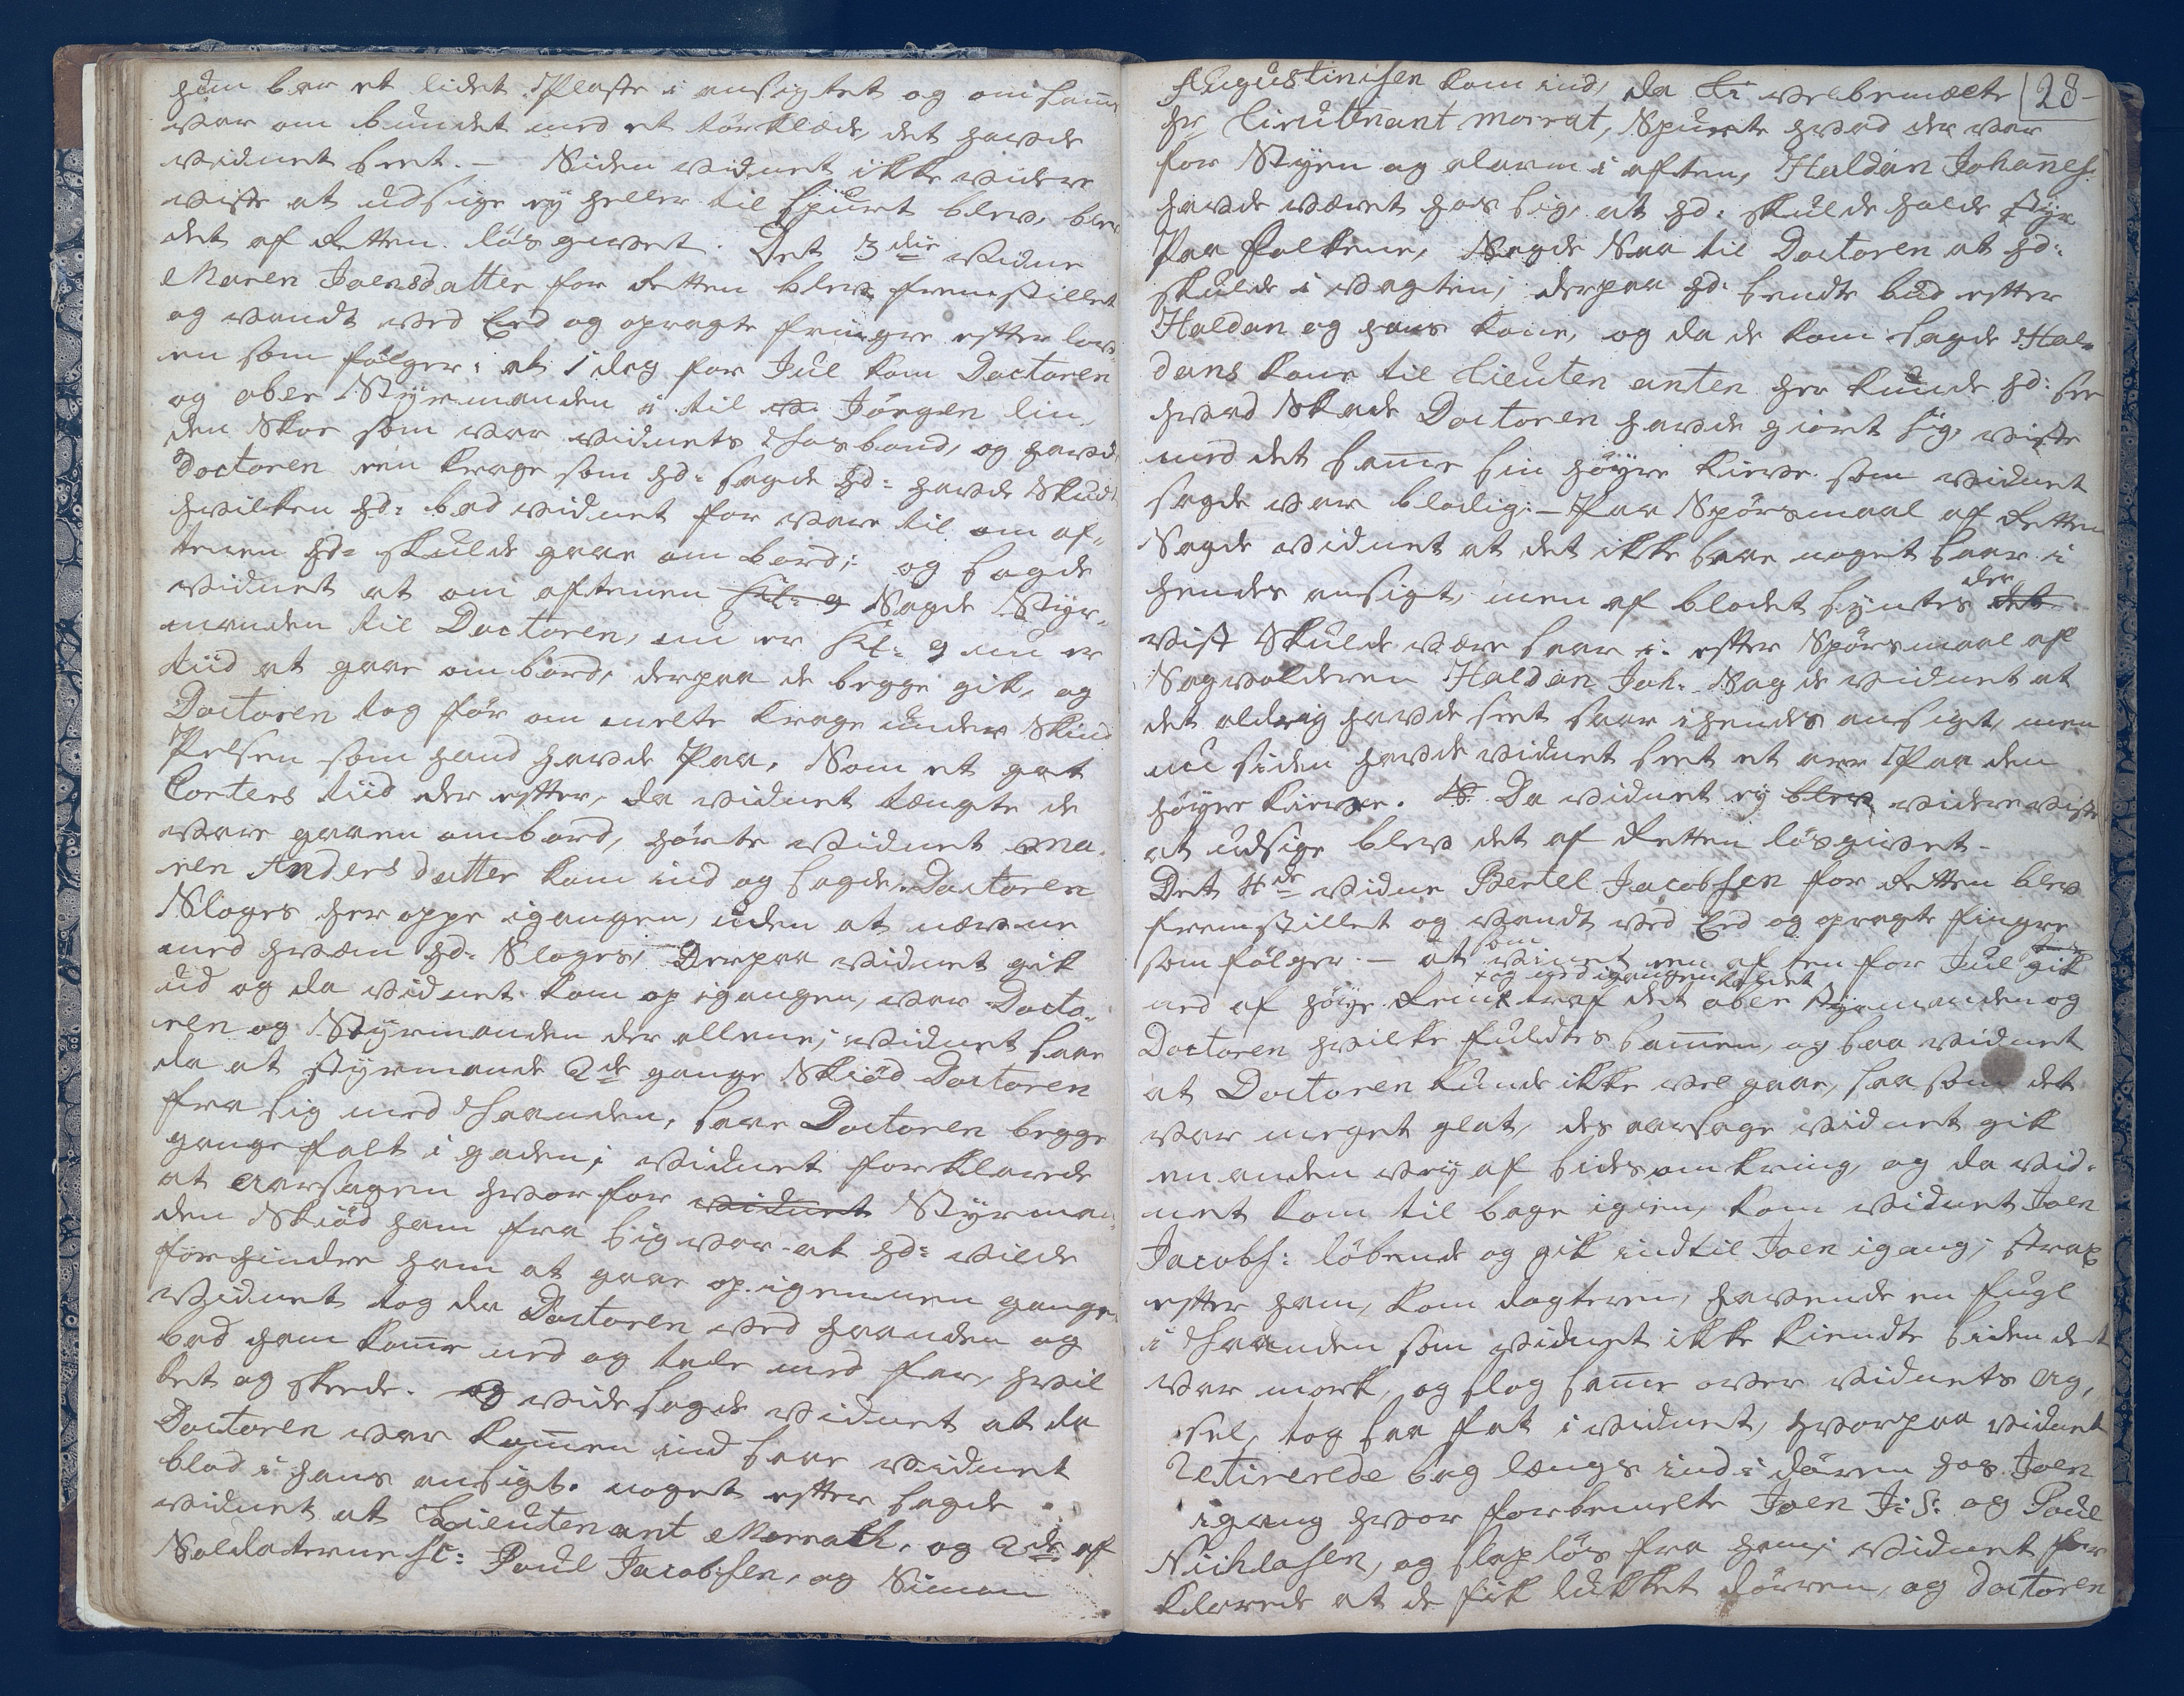 hun bar et lidet Plaster i ansigtet og om hami
var om bundet med et tørklæde, det havde
vidnet seet. — Siden vidnet ikke videre
viste at udsige ey heller til spurt blev, blev
det af Retten løsgivet. Det 3die vidne
Maren Joensdatter for Retten blev fremstillet
og vandt ved Eed og opragte fringre efter lov-
en som følger: at 1 dag for Jul kom Doctoren
og ober Styrmanden i til Jörgen lin
den Skov som var vidnets Hosbond, og havde
Doctoren een Krage som hd: sagde hd: havde Skudt
hvilken hd: bad vidnet for vare til om af-
tenen hd: skulde gaae om bord; og sagde
vidnet at om aftenen Kl: 9 Sagde Styr-
manden til Doctoren, nu er Kl: 9 nu er
tiid at gaae ombord, derpaa de begge gik, og
Doctoren tog før om melte Krage under Skind
Pelsen som hand havde Paa, Som et got
Corters tiid der efter, da vidnet tængte de
vare gaaen ombord, hørte vidnet Ma-
ren Anders datter kom ind og sagde: Doctoren
Sloges her oppe igangen, uden at nævne
med hvem hd: Sloges, Derpaa vidnet gik
ud og da vidnet kom op igangen, var Docto-
ren og Styrmanden der allene; vidnet saae
da at styrmand 2de gange Skiød Doctoren
fra sig med Haanden, saae Doctoren begge
gange falt i gaden; vidnet forklarede
at Aarsagen hvorfor vidnet Styrman-
den Skiød ham fra sig var at hd: vilde
forhindre ham at gaae op igennem gangen
vidnet tog da Doctoren ved haanden og
bad ham kome ned og tale med far, hvil
ket og skeede. og vide sagde vidnet at da
Doctoren var kommen ind saae vidnet
blod i hans ansigt. noget efter sagde
vidnet at Lieutenant Morrath, og 2de af
Soldaterne Sc: Poul Jacobsen, og Simon
Augustinisen kom ind, da velbemælte 28
hr Lieutenant Morrat, Spurte hvad der var
for Styen og alarm i aften, Haldan Johanes:
havde været hos sig, at hd: skulde holde Styr
Paa folkene, Sagde Saa til Doctoren at hd:
skulde i vagten; derpaa hd: sendte bud efter
Haldan og hans kone, og da de kom sagde Hal-
dans kone til Lieutenanten her kunde hd: see
hvad Skade Doctoren havde giort sig, viste
med det same sin høyre kieve som vidnet
sagde var blodig: — Paa Spørsmaal af Retten
Sagde vidnet at det ikke saae noget saar i
hendes ansigt, men af blodet syntes det der
vist Skulde være saar i. efter Spørsmaal af
Sagvolderen Haldan Joh: Sagde vidnet at
det aldrig havde seet saar i hendes ansigt, men
nu siden havde vidnet seet et arr Paa den
høyre kieve. Da vidnet ey blev videre viste
at udsige blev det af Retten løsgivet —
Det 4de vidne Bertel Jacobsen for Retten blev
fremstillet og vandt ved Eed og opragte fingre
som følger. — at som vinet een aften for Jul gik
× og ned igangen kaldet
ned af høye Reine traf det ober styrmanden og
Doctoren hvilke fuldtes samen, og saa vidnet
at Doctoren kunde ikke vel gaae, saasom det
var meget glat, des aarsage vidnet gik
en anden vey af sides omkring, og da vid-
net kom til bage igien, kom vidnet Joen
Jacobs: løbende og gik indtil Joen igang; strax
efter ham, kom dogteren, havende en fugl
i Haanden som vidnet ikke kiendte siden det
var mørk, og slog same over vidnets Ag,
sel, tog saa fat i vidnet, hvorpaa vidnet
Retirerede bag længs ind i døren hos Joen
igang hvor forbemelte Joen J: S: og Poul
Nichlasen, og slap løs fra ham; vidnet for
klarede at de fik lukket dørren, og Doctoren